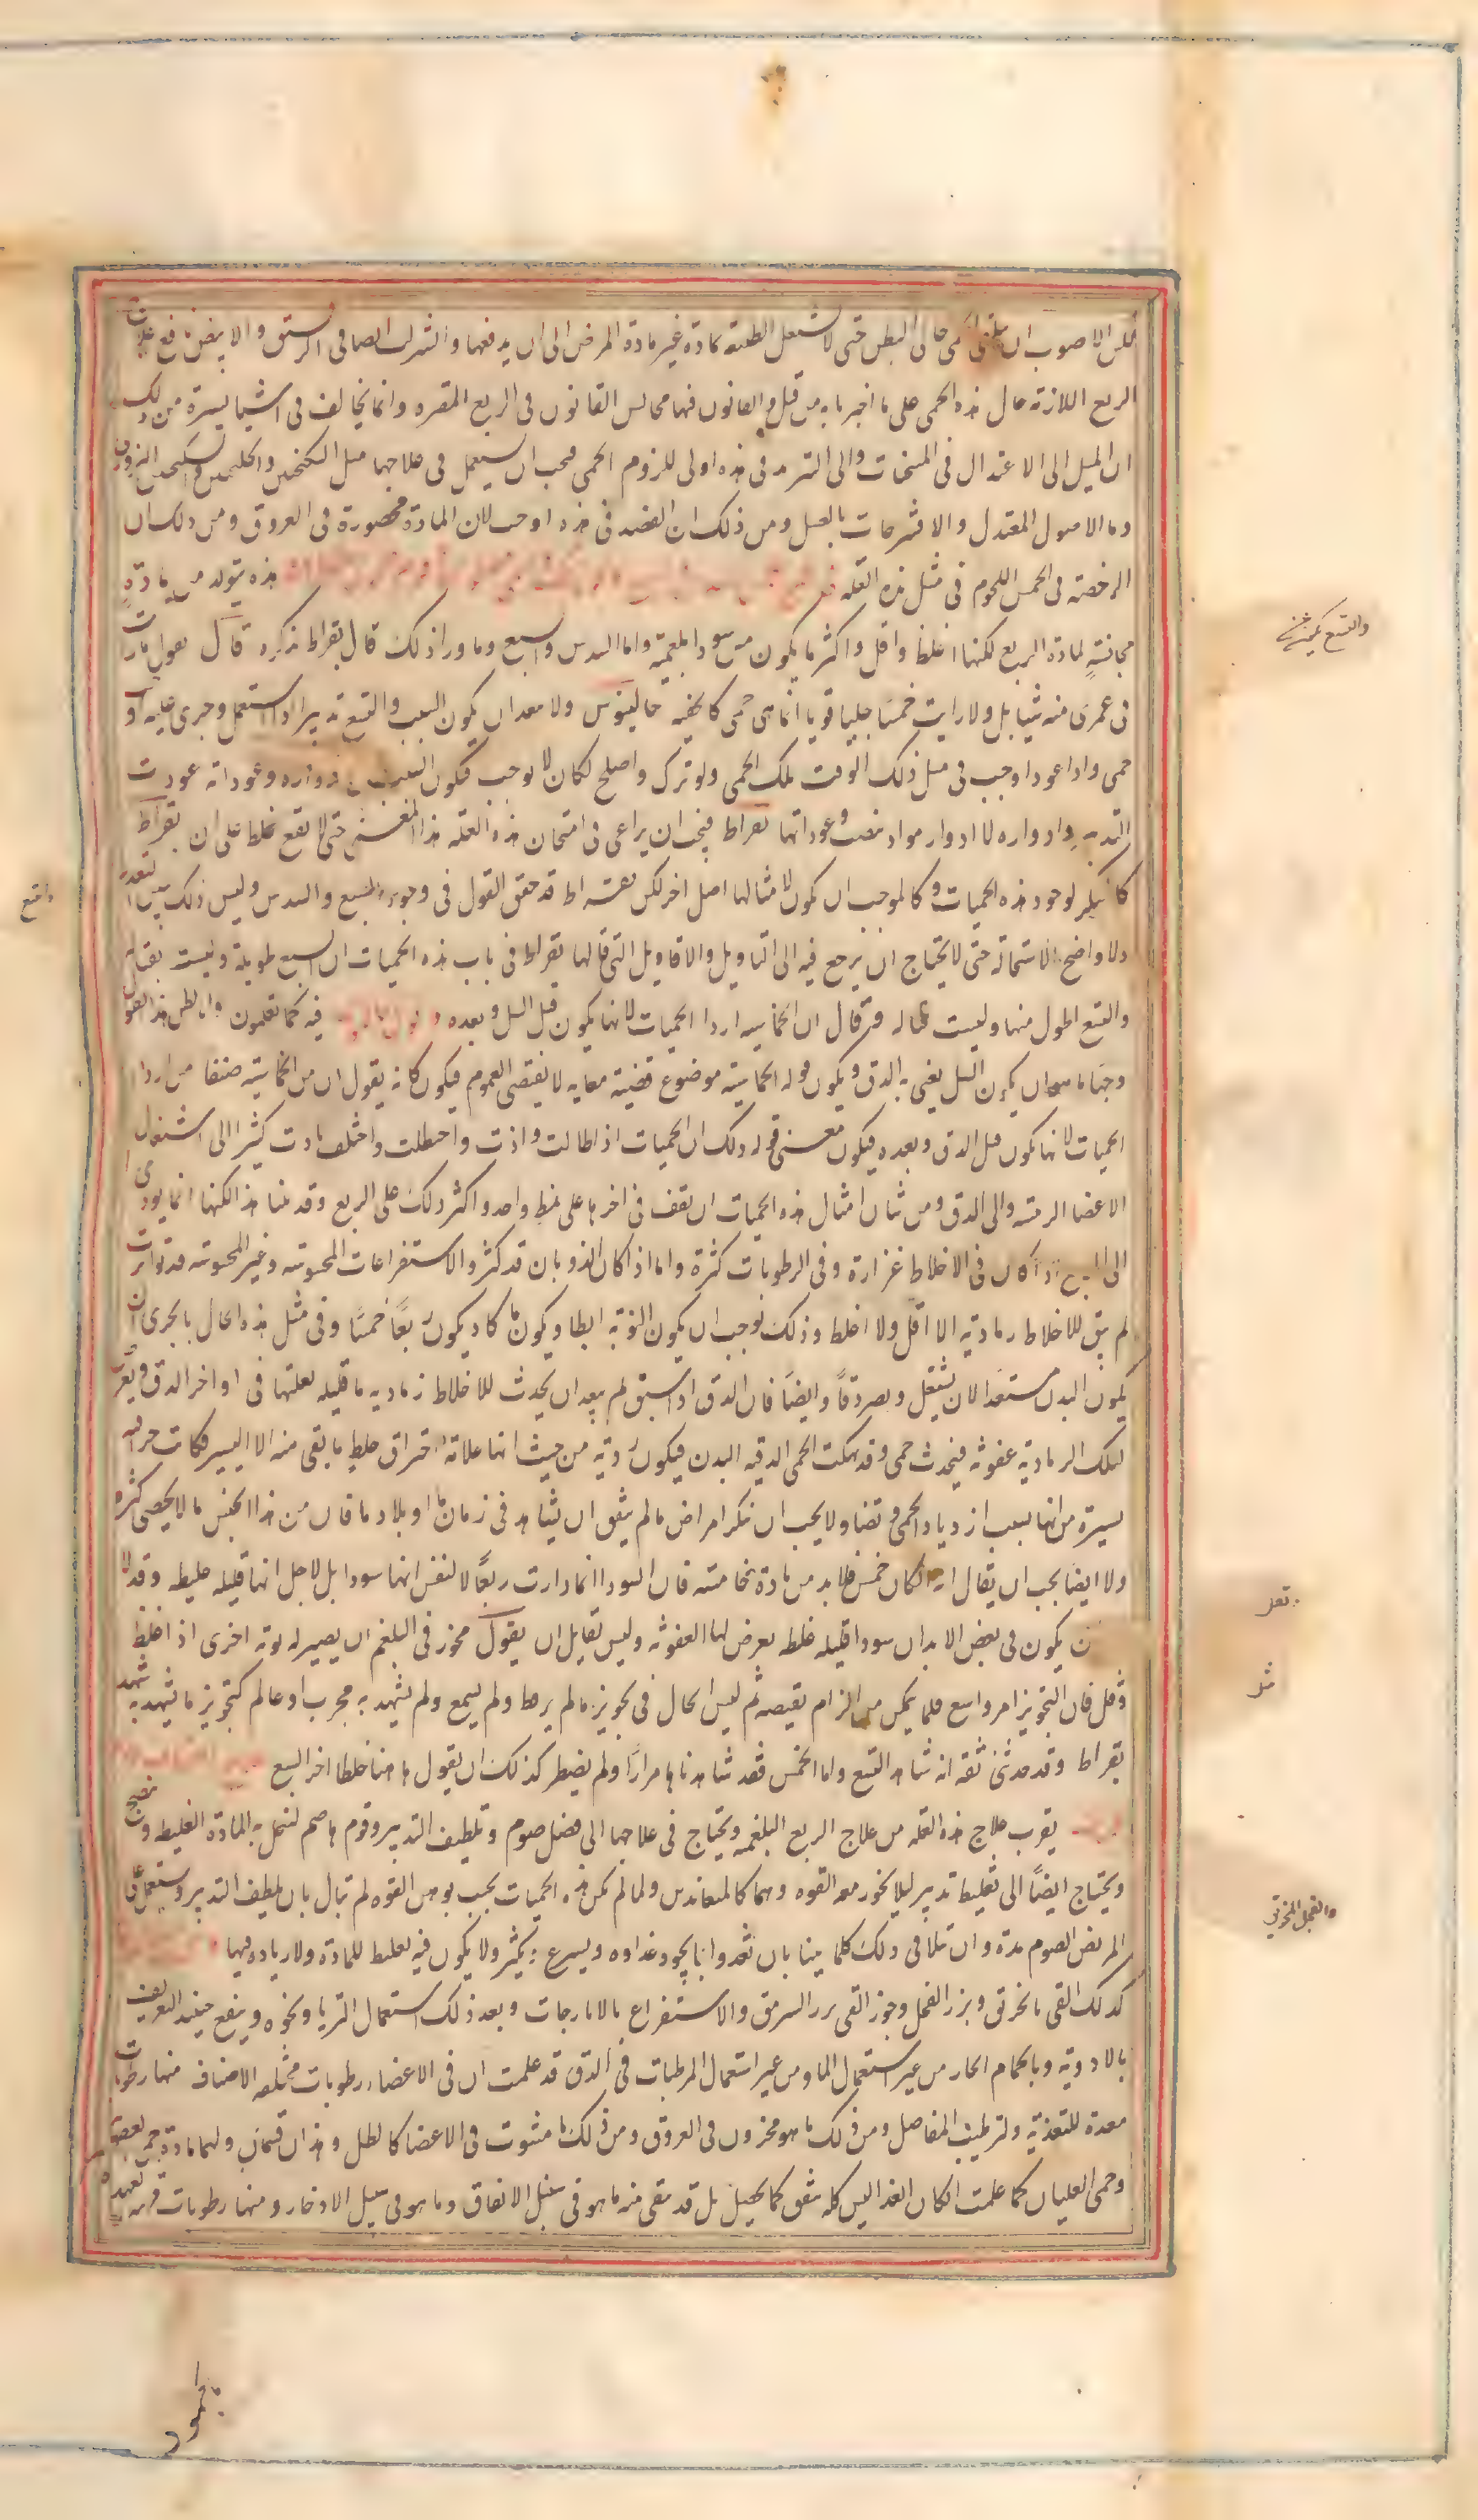 الاصوب ان حتى لا يشتغل الطبيعة بمادة غير مادة المرض الى ان يدفعها والشراب الصافى الرقيق والابيض نافع علاج
الربع اللازمة حال هذه الحمى على ما اخبرنا به من قبل والقانون فيها مجانس القانون فى الربع المفتره وانما يخالف فى اشيا يسيرة من ذلك
ان الميل الى الاعتدال فى المسخنات والى التبريد فى هذه اولى للزوم الحمى فيجب ان يستعمل فى علاجها مثل السكنجبين والجلنجبين والسكنجبين البزورى
وما الاصول المعتدل والاقشرجات بالعسل ومن ذلك ان الفصد فى هذه اوجب لان المادة محصورة فى العروق ومن ذلك ان
الرخصة فى الحمص اللحوم فى مثل هذه العله هذه يتولد من مادة
مجانسةٍ لمادة الربع لكنها اغلظ واقل واكثر ما يكون من سودا بلغمية واما السدس والسبع وما ورا ذلك قال بقراط ذكره قال يقول ما رايت
فى عمرى منه شيا بل ولا رايت خمسا جليا قويا انما هى حمى كالخفيه جالينوس ولا يبعد ان يكون السبب والتسع تدبيرا اذا استعمل وجرى عليه او
حمى واذا اعود اوجب فى مثل ذلك الوقت تلك الحمى ولو ترك واصلح لكان لا يوجب فيكون السبب ادواره وعوداته عودت
التدبير وادواره لا ادوار مواد تنصب وعوداتها بقراط فيجب ان يراعى فى امتحان هذه العله هذا المعنى حتى لا يقع غلط على ان بقراط
كالمنكر لوجود هذه الحميات وكالموجب ان يكون لامثالها اصل اخر لكن بقراط قد حقق القول فى وجود السبع والسدس وليس ذلك بين التعذر
ولا واضح الاستحالة حتى لا يحتاج ان يرجع فيه الى التاويل والاقاويل التى قالها بقراط فى باب هذه الحميات ان السبع طويلة وليست بقتاله
والتسع اطول منها وليست قتاله وقد قال ان الخماسيه اردا الحميات لانها يكون قبل السل وبعده فيه كما تعلمون وانا لظن هذا القول
وجها ما هو ان يكون السل يعنى به الدق ويكون قوله الخماسية موضوع قضية مهملة لا يقتضى العموم فيكون كانه يقول ان من الخماسية صنفا من اردا
الحميات لانها يكون قبل الدق وبعده فيكون معنى قوله ذلك ان الحميات اذا طالت واذت واختلطت واختلف ادت كثيرا الى اشتعال
الاعضا الرئيسه والى الدق ومن شان امثال هذه الحميات ان يقف فى اخرها على نمط واحد واكثر ذلك على الربع وقد قلنا هذا لكنها انما يودى
الى الربع اذا كان فى الاخلاط غزارة وفى الرطوبات كثرة واما اذا كان الذوبان قد كثر والاستفراغات المحسوسه وغير المحسوسه قد تواترت
لم يبق للاخلاط رمادية الا اقل ولا اغلظ وذلك يوجب ان يكون النوبة ابطا ويكون ما كاد يكون ربعًا خمسًا وفى مثل هذه الحال بالحرى ان
يكون البدن مستعدا لان يشتعل ويصير دقا وايضا فان الدق اذا سبق لم يبعد ان يحدث للاخلاط رماديه ما قليله لقلتها فى اواخر الدق ويعرض
لتلك الرمادية عفونه فيحدث حمى وقد نهكت الحمى الدقيه البدن فيكون ردية من حيث انها علامة احتراق خلط ما بقى منه الا اليسير فكانت حراقه
يسيرة من انها بسبب ازدياد الحمى وتضاو ولا يجب ان ننكر امراض ما لم يتفق ان يشاهد فى زمان ما او بلاد ما فان من هذا الجنس ما لا يحصى كثره
ولا ايضا يجب ان يقال انه لو كان خمس فلابد من مادة خامسه فان السودا انما دارت ربعًا لا لنفس انها سودا بل لاجل انها قليله غليظه وقد لا
يكون فى بعض الابدان سودا قليله غلظه يعرض لها العفونه وليس لقايل ان يقول محوز فى البلغم ان يصير له نوبة اخرى اذا غلظ
وقل فان التجويز امر واسع قلما يمكن من الزام نقيضه ثم ليس الحال فى تجويز ما لم ير ولم يسمع ولم يشهد به مجرب او عالم كتجويز ما يشهد به
بقراط وقد حدثنى ثقة انه شاهد التسع واما الخمس فقد شاهدناها مرارا ولم نضطر كذلك ان يقول هاهنا خلطا اخر السبع
يقرب علاج هذه العله من علاج الربع البلغميه ويحتاج فى علاجها الى فضل صوم وتلطيف التدبير وقوم هاضم لتحل به المادة الغليظه وينضج
ويحتاج ايضًا الى تغليظ تدبير ليلا يخور معه القوه وهما كالمتعاندين ولما لم يكن هذه الحميات يجب توهين القوه لم تبال بان يلطف التدبير ويستعمل على
المريض الصوم مدة وان تلافى ذلك كلما بينا بان نغذوا بما يجود غذاوه ويسرع ويكثر ولا يكون فيه تغليظ للمادة ولا زيادة فيها
كذلك القى بالخربق وبزر الفجل وجوز القى وبزر السرمق والاستفراغ بالايارجات وبعد ذلك استعمال الترياق ونحوه وينفع حينئذ التعريق
بالادوية وبالحمام الحار من غير استعمال الما ومن غير استعمال المرطبات فى الدق قد علمت ان فى الاعضاء رطوبات مختلفه الاصناف منها رطوبات
معدة للتغذية ولترطيب المفاصل ومن ذلك ما هو مخزون فى العروق ومن ذلك ما مبثوث فى الاعضا كالطل وهذان قسمان ولهما مادة حمى العفونه
وحمى الغليان كما علمت اذ كان الغذا ليس كله ينفق كما يحصل بل قد يبقى منه ما هو فى سبيل الانفاق وما هو فى سبيل الادخار ومنها رطوبات قريبه العهد